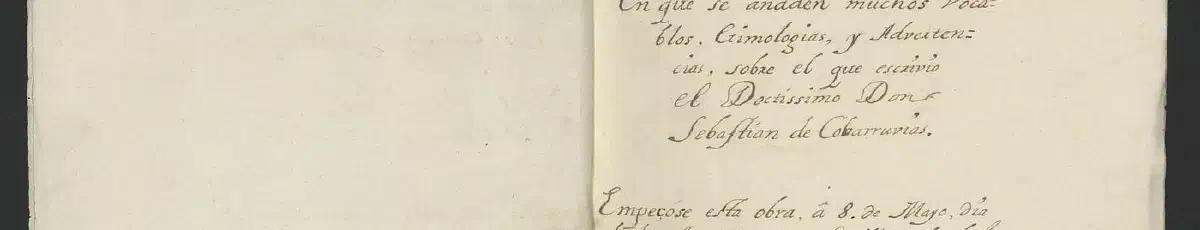 En que se añaden muchos Voca=
blos, Etimologias, y Advciten=
cias, sobre el que escrivio
el Doctissimo Don
Sebastian de Cobarruvias.
Empeçóse esta obra, â 8. de Mayo, dia